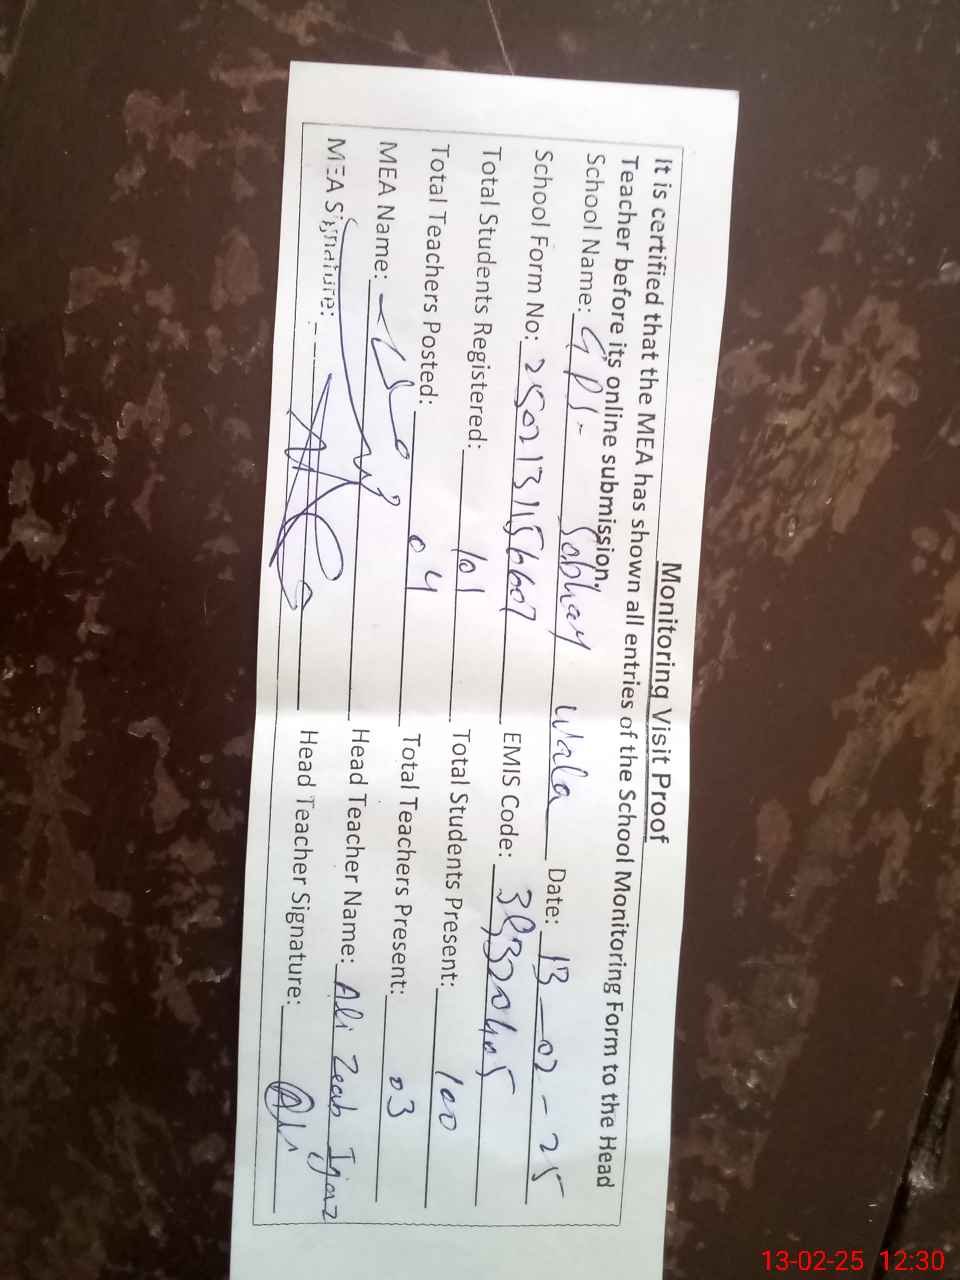 Monitoring Visit Proof
It is certified that the MEA has shown all entries of the School Monitoring Form to the Head
Teacher before its online submission.
School Name: GPS Sobhay Wala Date: 13-02-25
School Form No: EMIS Code:
Total Students Registered: 101 Total Students Present: 100
Total Teachers Posted: 04 Total Teachers Present: 03
MEA Name: Head Teacher Name: Ali Zeab Ijaz
MEA Signature: Head Teacher Signature: Ali
13-02-25 12:30